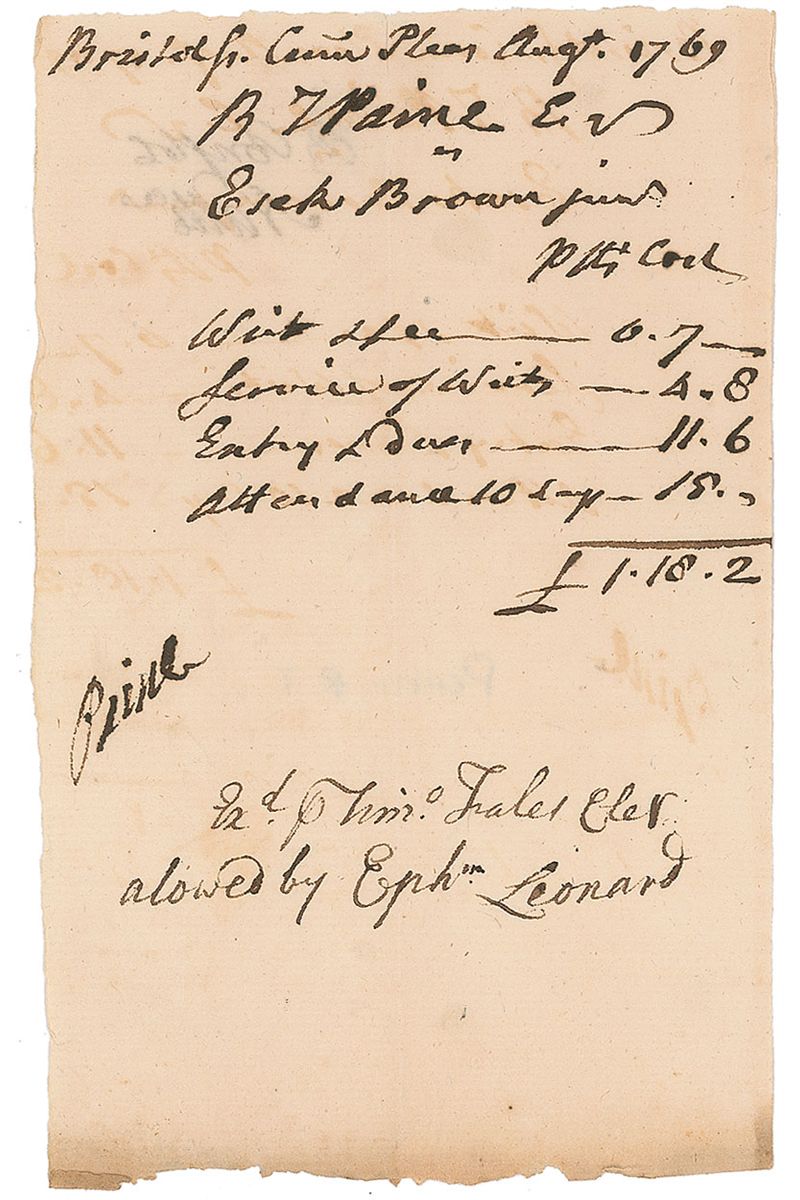 Bristol ss. Com Pleas Augt. 1769
R T Paine Esq
vs
Esek Brown junr
Plts Cost
Writ & fee 0.7
Service of Writ 4.8
Entry & dues 11.6
Attendance 10 days 15.
£ 1.18.2
Paine
Exd. ⅌ Timo. Fales Cler
alowed by Ephm Leonard